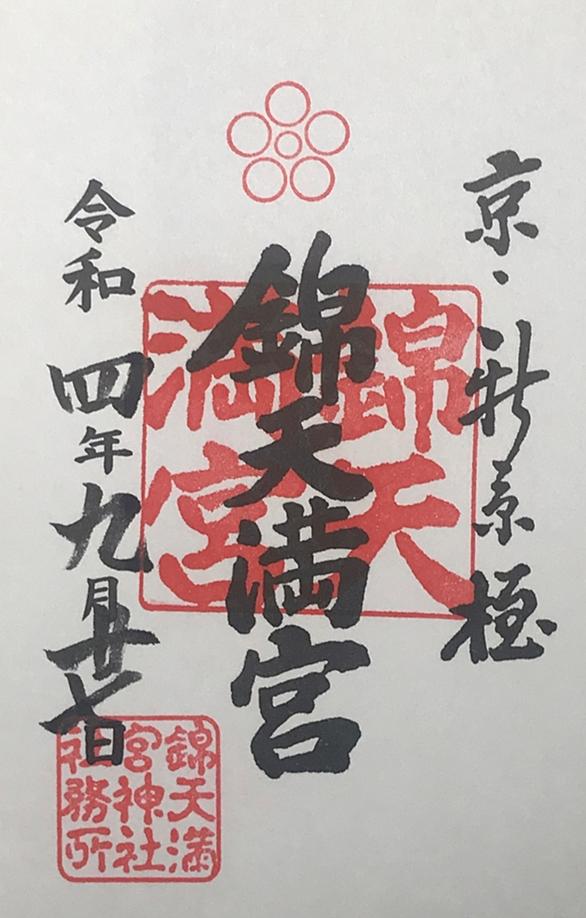 京・新京極
錦天満宮
錦天
満宮
令和四年九月廿七日
錦天満
宮神社
社務所